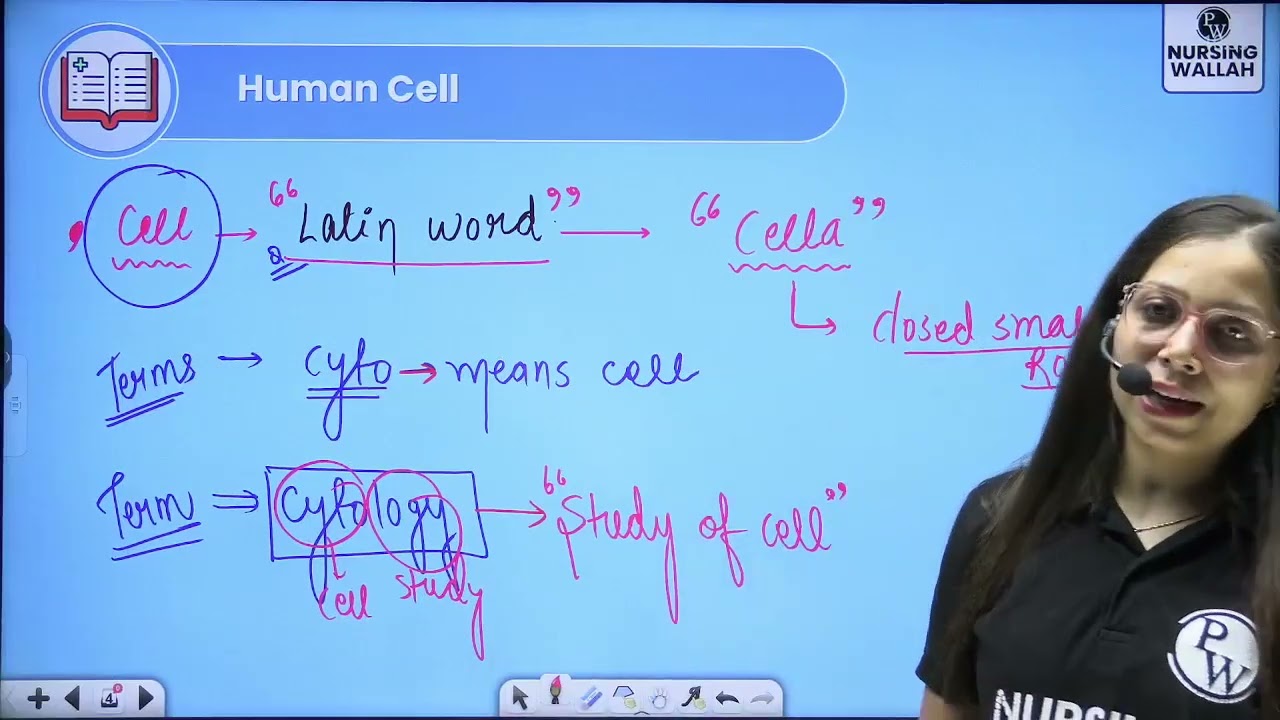 Human Cell
PW
NURSING
WALLAH
Cell → "Latin word" → "Cella"
closed
Terms → Cyto → means cell
Term ⇒ Cytology → "Study of cell"
Cell study
4
PW